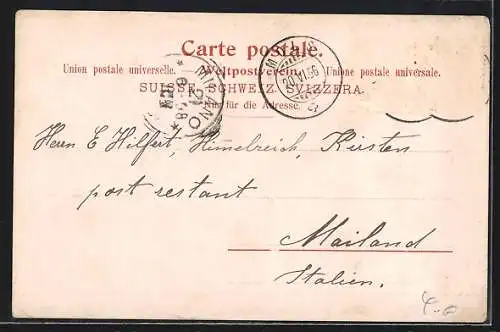 Carte postale.
Union postale universelle. — Weltpostverein. — Unione postale universale.
SUISSE. SCHWEIZ. SVIZZERA.
Nur für die Adresse.
MILANO
20.VI.96
Herrn E Hilfert, Himelreich, Kürsten
post restant
Mailand
Italien.